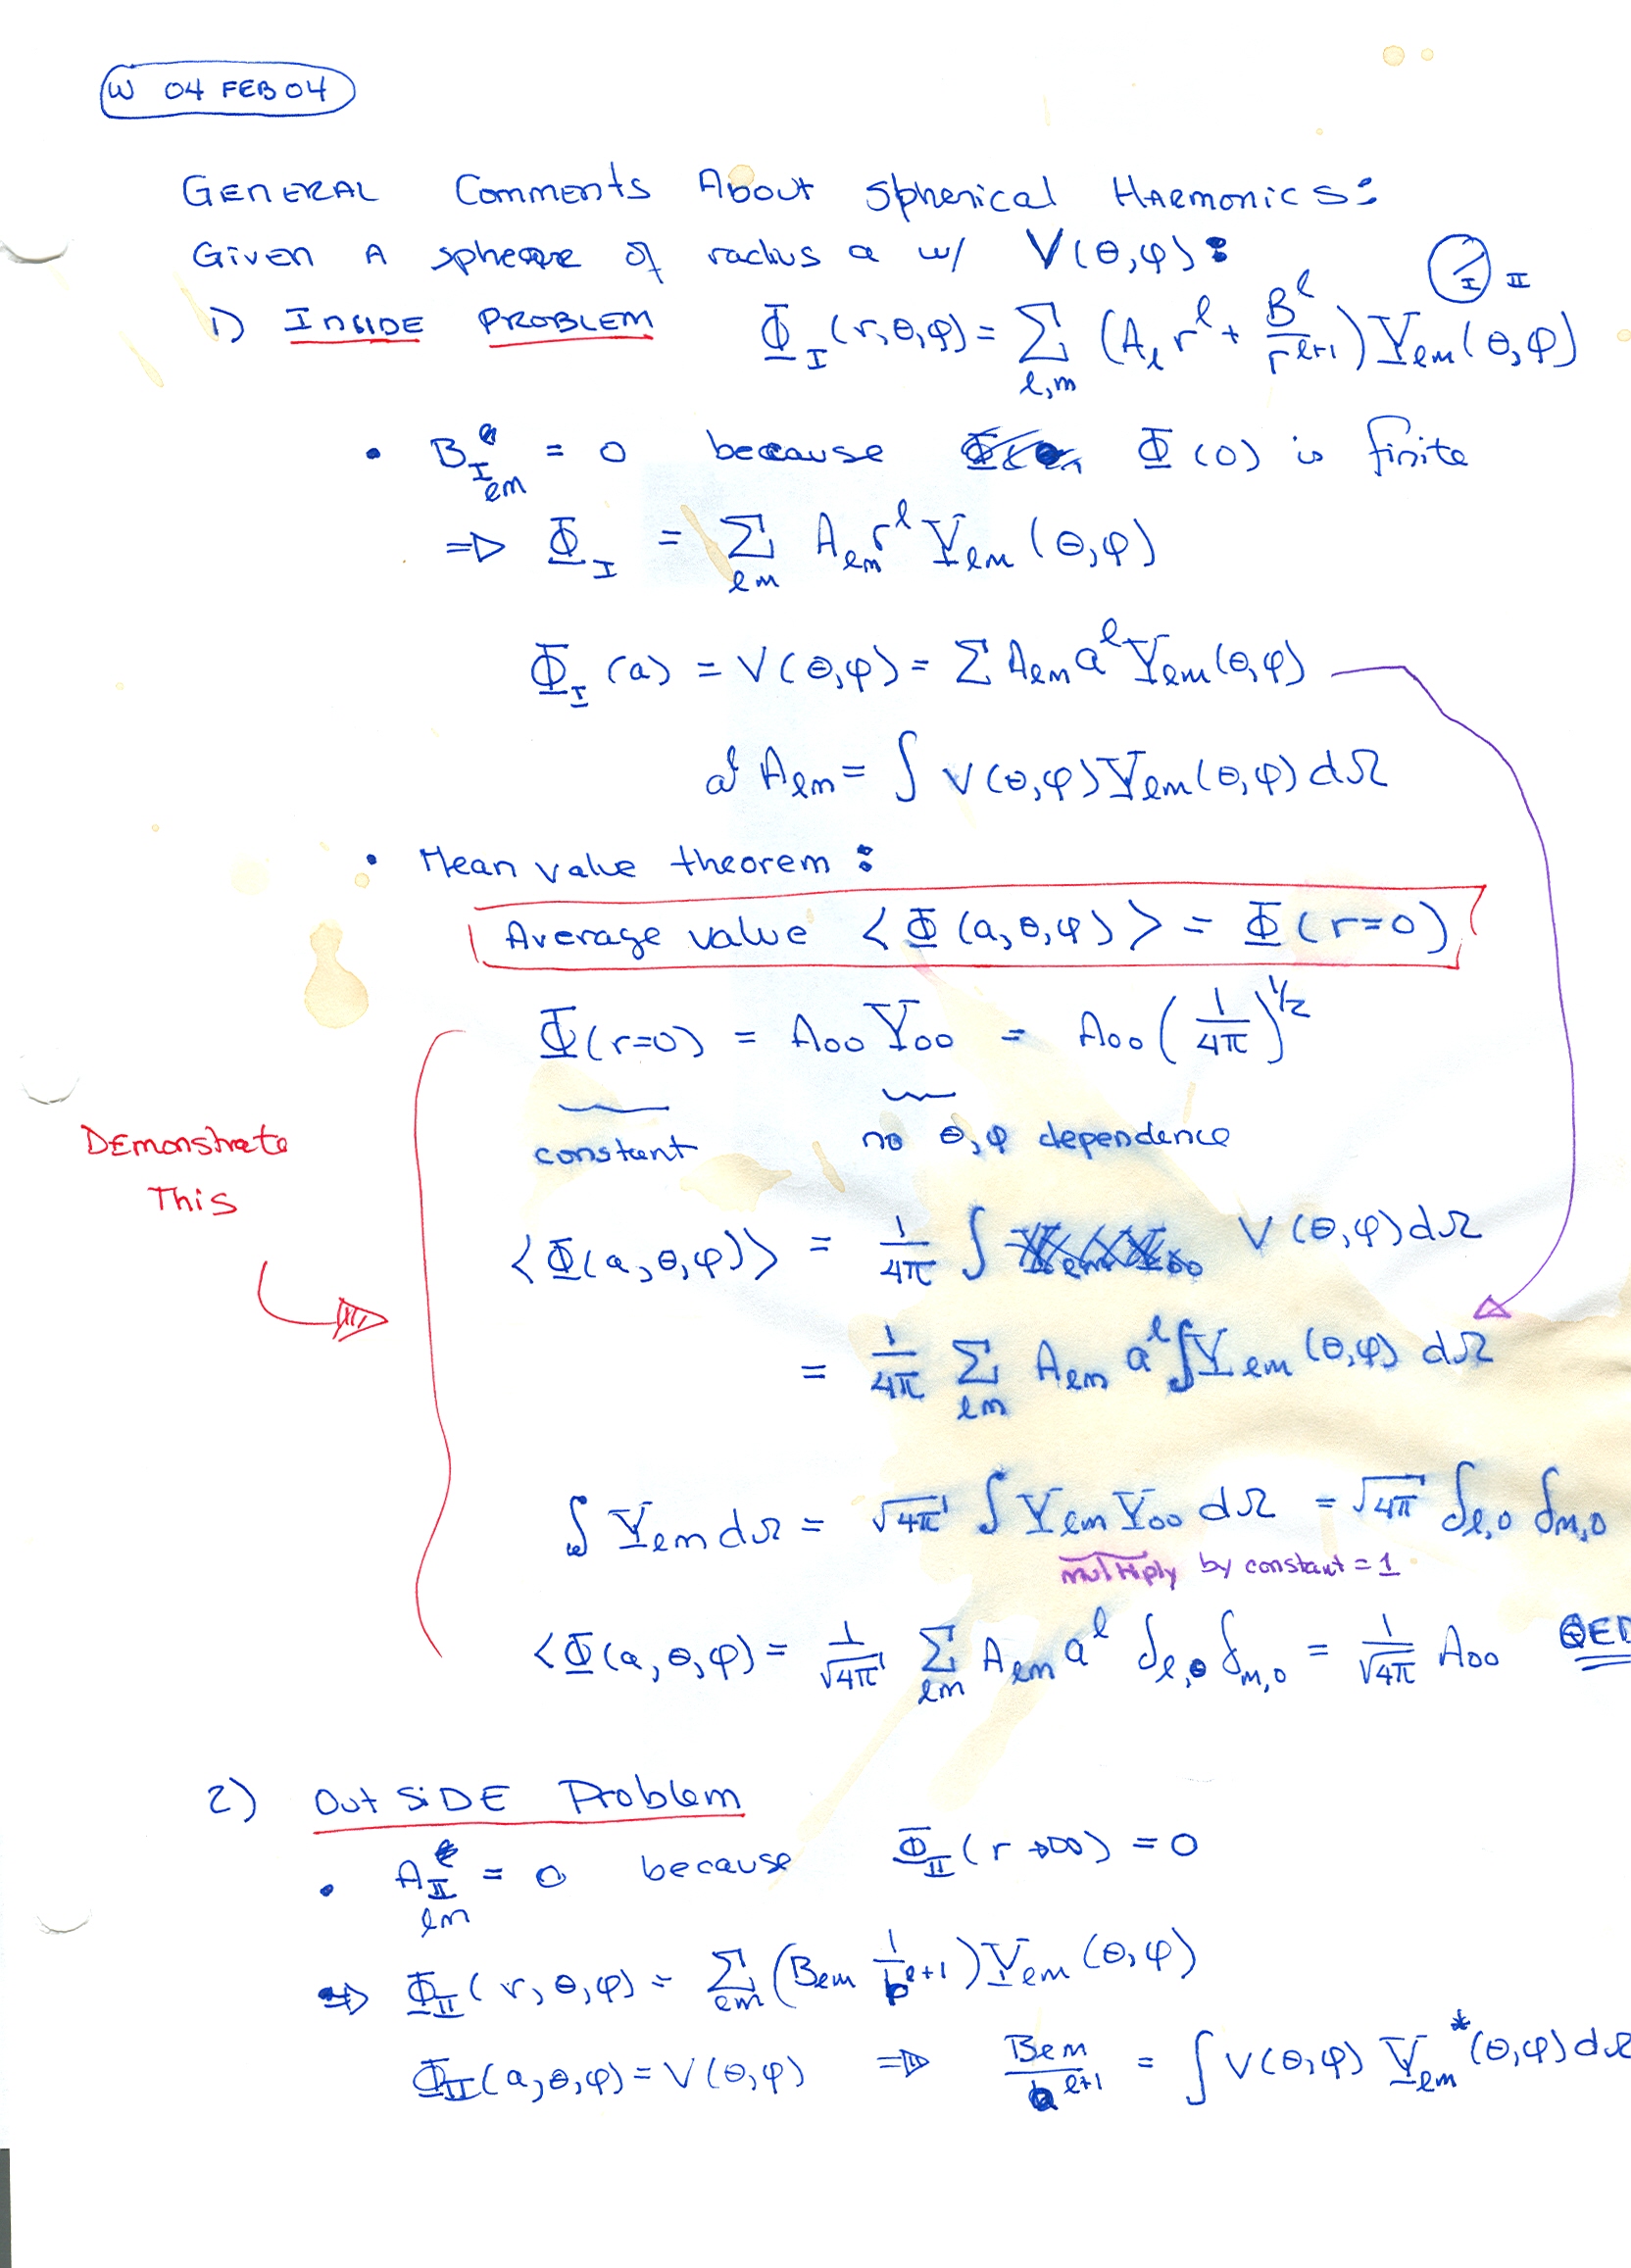 W 04 FEB 04
GENERAL Comments About Spherical Harmonics:
Given A sphere of radius a w/ V(θ,φ):
I II
1) INSIDE PROBLEM Φ_I (r,θ,φ) = Σ_{l,m} (A_l r^l + B^l / r^{l+1}) Y_lm (θ,φ)
• B_I lm = 0 because Φ(0) is finite
⇒ Φ_I = Σ_{lm} A_lm r^l Y_lm (θ,φ)
Φ_I (a) = V(θ,φ) = Σ A_lm a^l Y_lm (θ,φ)
a^l A_lm = ∫ V(θ,φ) Y_lm (θ,φ) dΩ
• Mean value theorem:
Average value <Φ(a,θ,φ)> = Φ(r=0)
Φ(r=0) = A_00 Y_00 = A_00 (1/4π)^{1/2}
constant no θ,φ dependence
DEmonstrate
This
<Φ(a,θ,φ)> = 1/4π ∫ V(θ,φ) dΩ
= 1/4π Σ_{lm} A_lm a^l ∫ Y_lm (θ,φ) dΩ
∫ Y_lm dΩ = √4π ∫ Y_lm Y_00 dΩ = √4π δ_{l,0} δ_{m,0}
multiply by constant = 1
<Φ(a,θ,φ) = 1/√4π Σ_{lm} A_lm a^l δ_{l,0} δ_{m,0} = 1/√4π A_00 QED
2) OutSiDE Problem
• A_II lm = 0 because Φ_II (r→∞) = 0
⇒ Φ_II (r,θ,φ) = Σ_{lm} (B_lm 1/r^{l+1}) Y_lm (θ,φ)
Φ_II (a,θ,φ) = V(θ,φ) ⇒ B_lm / a^{l+1} = ∫ V(θ,φ) Y_lm^* (θ,φ) dΩ